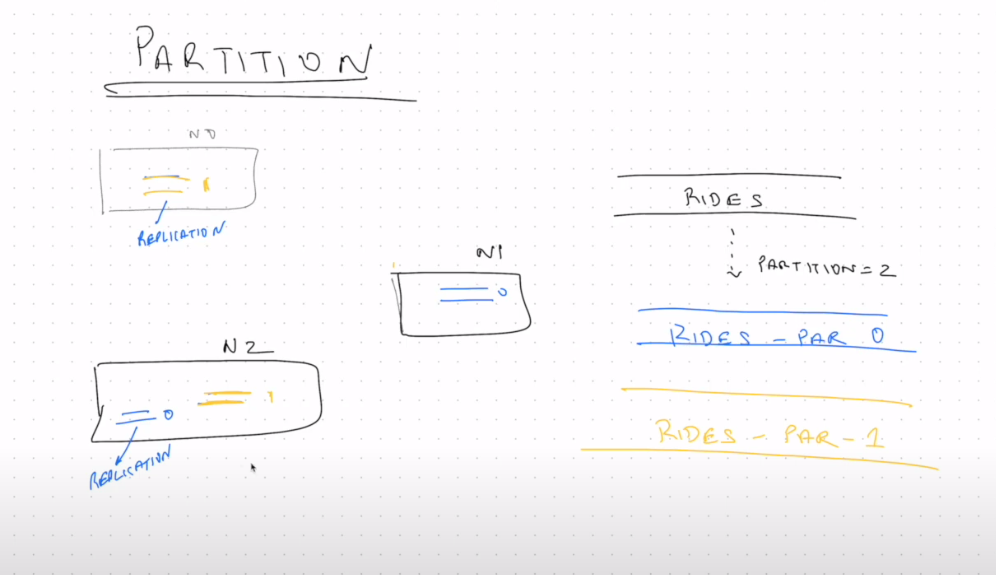 PARTITION
N0
1
REPLICATION
N1
0
N2
0
1
REPLICATION
RIDES
PARTITION = 2
RIDES - PAR 0
RIDES - PAR - 1